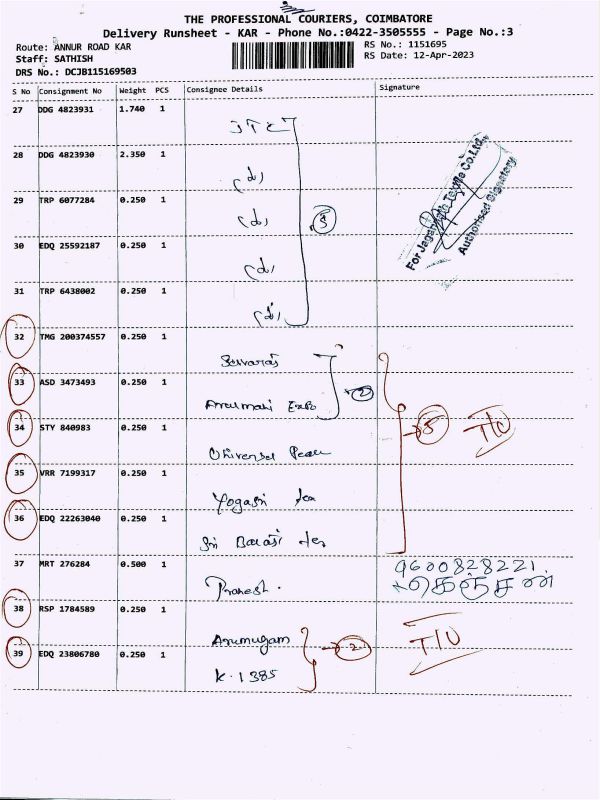 THE PROFESSIONAL COURIERS, COIMBATORE
Delivery Runsheet - KAR - Phone No.:0422-3505555 - Page No.:3
Route: ANNUR ROAD KAR
Staff: SATHISH
DRS No.: DCJB115169503
RS No.: 1151695
RS Date: 12-Apr-2023
S No Consignment No Weight PCS Consignee Details Signature
27 DDG 4823931 1.740 1
28 DDG 4823930 2.350 1
For Jagannath Textile Co.Ltd.,
Authorised Signatory
29 TRP 6077284 0.250 1
30 EDQ 25592187 0.250 1
31 TRP 6438002 0.250 1
32 TMG 200374557 0.250 1
33 ASD 3473493 0.250 1
2
Arrumani Expo
34 STY 840983 0.250 1
5 T/O
Universal
35 VRR 7199317 0.250 1
Yogasri Tex
36 EDQ 22263040 0.250 1
Sri Balaji Tex
37 MRT 276284 0.500 1
9600828221
Prakash.
38 RSP 1784589 0.250 1
Arumugam
2 T/O
39 EDQ 23806780 0.250 1
K. 1385